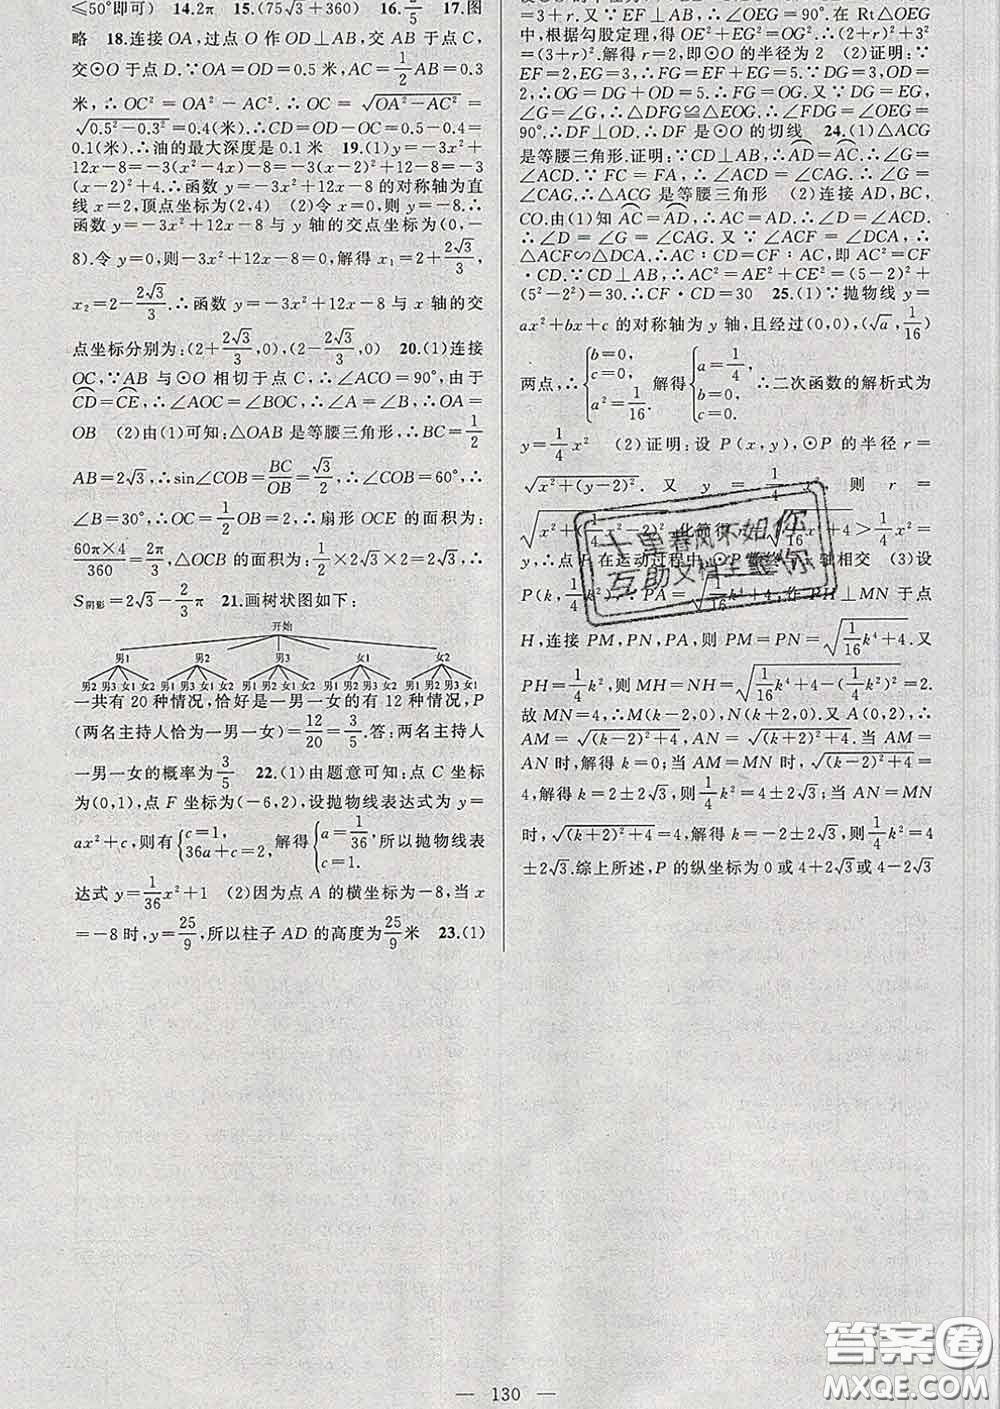 ≤50°即可)　14.2π　15.(75√3+360)　16.2/5　17.图
略　18.连接 OA,过点 O 作 OD⊥AB,交 AB 于点 C,
交⊙O 于点 D.∵OA=OD=0.5 米,AC=1/2AB=0.3
米,∴OC²=OA²-AC².∴OC=√(OA²-AC²)=
√(0.5²-0.3²)=0.4(米).∴CD=OD-OC=0.5-0.4=
0.1(米).∴油的最大深度是 0.1 米　19.(1)y=-3x²+
12x-8=-3(x²-4x)-8=-3(x-2)²+12-8=-3
(x-2)²+4.∴函数 y=-3x²+12x-8 的对称轴为直
线 x=2,顶点坐标为(2,4)　(2)令 x=0,则 y=-8.∴
函数 y=-3x²+12x-8 与 y 轴的交点坐标为(0,-
8).令 y=0,则-3x²+12x-8=0,解得 x₁=2+2√3/3,
x₂=2-2√3/3.∴函数 y=-3x²+12x-8 与 x 轴的交
点坐标分别为:(2+2√3/3,0),(2-2√3/3,0)　20.(1)连接
OC,∵AB 与⊙O 相切于点 C,∴∠ACO=90°,由于
CD=CE,∴∠AOC=∠BOC,∴∠A=∠B,∴OA=
OB　(2)由(1)可知:△OAB 是等腰三角形,∴BC=1/2
AB=2√3,∴sin∠COB=BC/OB=√3/2,∴∠COB=60°,∴
∠B=30°,∴OC=1/2OB=2,∴扇形 OCE 的面积为:
60π×4/360=2π/3,△OCB 的面积为:1/2×2√3×2=2√3,∴
S阴影=2√3-2/3π　21.画树状图如下:
开始
男1　男2　男3　女1　女2
男2 男3 女1 女2　男1 男3 女1 女2　男1 男2 女1 女2　男1 男2 男3 女2　男1 男2 男3 女1
一共有 20 种情况,恰好是一男一女的有 12 种情况,P
(两名主持人恰为一男一女)=12/20=3/5.答:两名主持人
一男一女的概率为3/5　22.(1)由题意可知:点 C 坐标
为(0,1),点 F 坐标为(-6,2),设抛物线表达式为 y=
ax²+c,则有{c=1, 36a+c=2,解得{a=1/36, c=1.所以抛物线表
达式 y=1/36x²+1　(2)因为点 A 的横坐标为-8,当 x
=-8 时,y=25/9,所以柱子 AD 的高度为25/9米　23.(1)
=3+r.又∵EF⊥FA,∴∠OEG=90°.在 Rt△OEG
中,根据勾股定理,得 OE²+EG²=OG².∴(2+r)²+3²
=(3+r)².解得 r=2,即⊙O 的半径为 2　(2)证明:∵
EF=2,EG=3,∴FG=EF+EG=5.∵DG=3,OD
=2,∴OG=DG+OD=5.∴FG=OG.又∵DG=EG,
∠G=∠G,∴△DFG≌△EOG.∴∠FDG=∠OEG=
90°.∴DF⊥OD.∴DF 是⊙O 的切线　24.(1)△ACG
是等腰三角形.证明:∵CD⊥AB,∴AD=AC.∴∠G=
∠ACD.∵FC=FA,∴∠ACD=∠CAG.∴∠G=
∠CAG.∴△ACG 是等腰三角形　(2)连接 AD,BC,
CO.由(1)知 AC=AD,∴AC=AD.∴∠D=∠ACD.
∴∠D=∠G=∠CAG.又∵∠ACF=∠DCA,∴
△ACF∽△DCA.∴AC∶CD=CF∶AC,即 AC²=CF
·CD.∵CD⊥AB,∴AC²=AE²+CE²=(5-2)²+
(5²-2²)=30.∴CF·CD=30　25.(1)∵抛物线 y=
ax²+bx+c 的对称轴为 y 轴,且经过(0,0),(√a,1/16)
两点,∴{b=0, c=0, a²=1/16.解得{a=1/4, b=0, c=0.∴二次函数的解析式为
y=1/4x²　(2)证明:设 P(x,y),⊙P 的半径 r=
√(x²+(y-2)²).又 y=1/4x²,则 r=
y,∴点 P 在运动过程中,⊙P 始终与 x 轴相交　(3)设
P(k,1/4k²),∵PA=√(1/16k⁴+4),作 PH⊥MN 于点
H,连接 PM,PN,PA,则 PM=PN=√(1/16k⁴+4).又
PH=1/4k²,则 MH=NH=√(1/16k⁴+4-(1/4k²)²)=2.
故 MN=4,∴M(k-2,0),N(k+2,0).又 A(0,2),∴
AM=√((k-2)²+4),AN=√((k+2)²+4).当 AM=
AN 时,解得 k=0;当 AM=MN 时,√((k-2)²+4)=
4,解得 k=2±2√3,则1/4k²=4±2√3;当 AN=MN
时,√((k+2)²+4)=4,解得 k=-2±2√3,则1/4k²=4
±2√3.综上所述,P 的纵坐标为 0 或 4+2√3 或 4-2√3
十里春风不如你
— 130 —
答案圈
MXQE.COM